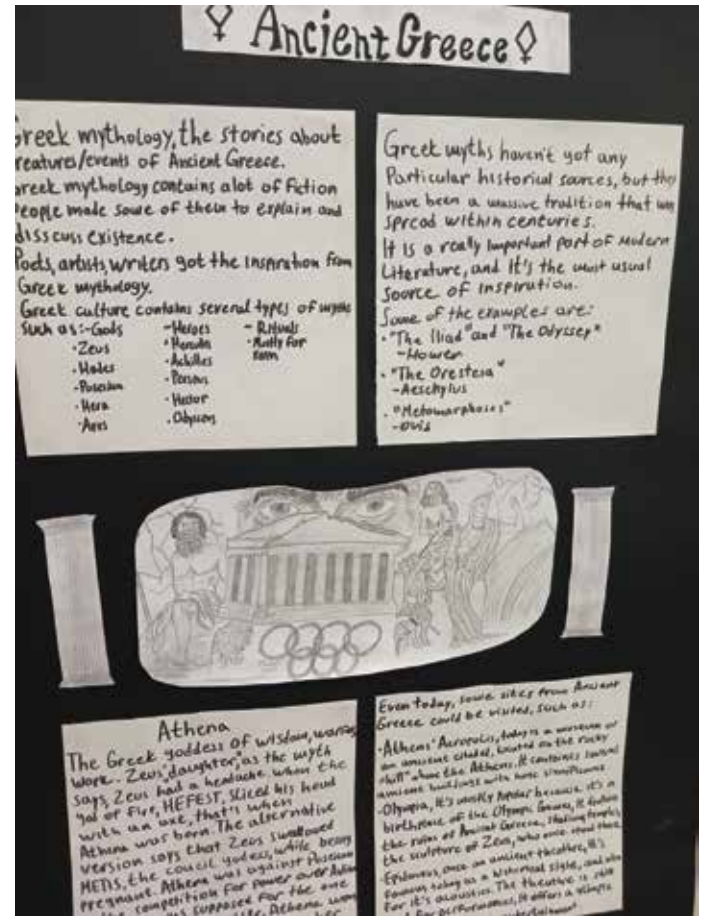 Ancient Greece
Greek mythology, the stories about
reatures/events of Ancient Greece.
Greek mythology contains alot of Fiction
People made some of them to explain and
disscuss existence.
Poets, artists, writers got the inspiration from
Greek mythology.
Greek culture contains several types of myths
such as:-Gods
·Zeus
·Hades
·Poseidon
·Hera
·Ares
-Heroes
·Hercules
·Achilles
·Perseus
·Hector
·Odysseus
-Rituals
·Mostly for
Greek myths haven't got any
Particular historical sources, but they
have been a massive tradition that was
spread within centuries.
It is a really important part of modern
Literature, and it's the most usual
source of inspiration.
Some of the examples are:
·"The Iliad" and "The Odyssey"
-Homer
·"The Oresteia"
-Aeschylus
·"Metamorphoses"
-Ovid
Athena
The Greek goddess of wisdom,
work. Zeus' daughter, as the myth
says, Zeus had a headache when the
god of fire, HEFEST, sliced his head
with an axe, that's when
Athena was born. The alternative
version says that Zeus swallowed
METIS, the goddess, while being
pregnant. Athena was against Poseidon
the competition for power over
supposed for the one
Athena
Even today, some sites from Ancient
Greece could be visited, such as:
·Athens' Acropolis, today is a museum or
an ancient citadel, located on the rocky
hill above the Athens. It contains several
ancient buildings with
·Olympia, it's mostly popular because it's a
birthplace of the Olympic Games, it
the ruins of Ancient Greece, temple,
the sculpture of Zeus, who once stood there
·Epidaurus, once an ancient theatre, it's
famous today as a historical style, and also
for it's acoustics. The theatre is still
for performances, it offers a glimpse